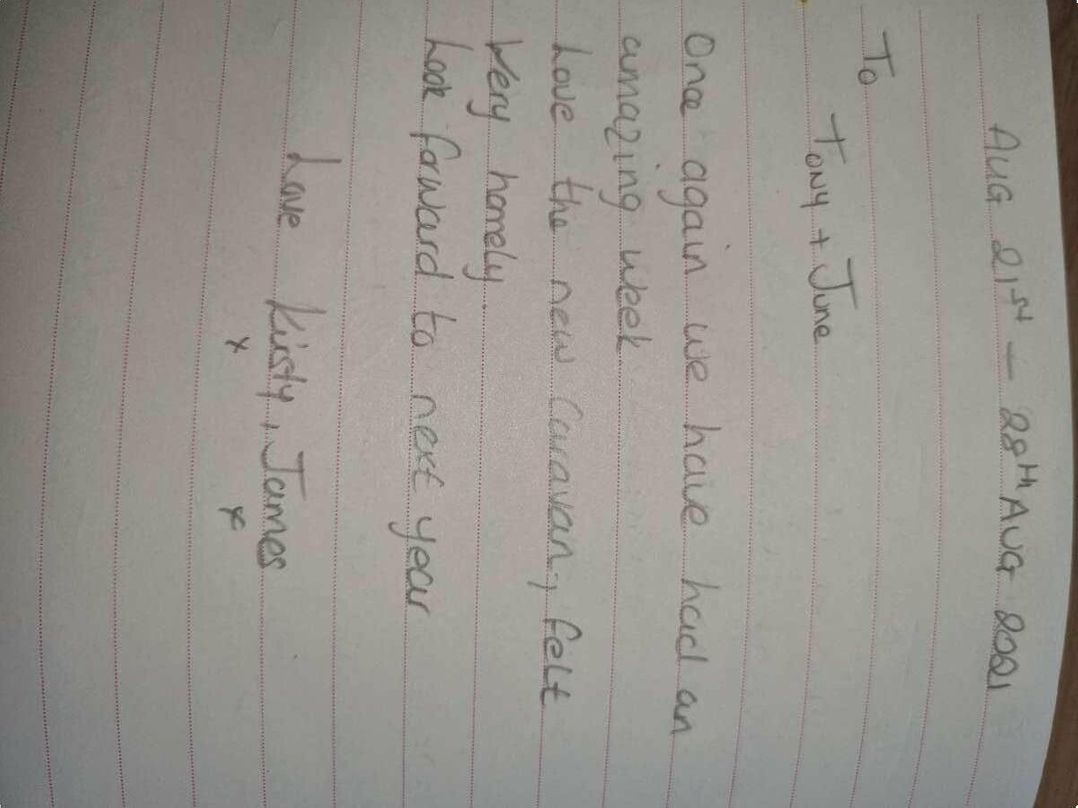 AUG 21st - 28th AUG 2021
To
Tony + June
Once again we have had an
amazing week
Love the new Caravan, felt
very homely.
Look forward to next year
Love Kirsty + James
x x